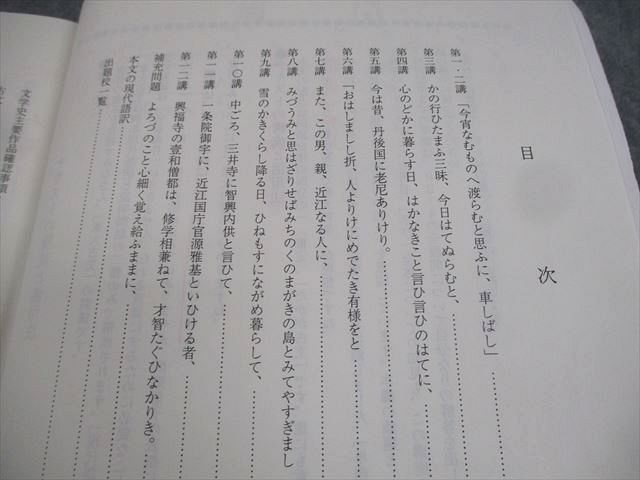 目次
第一・二講 「今宵なむものへ渡らむと思ふに、車しばし」
第三講 かの行ひたまふ三昧、今日はてぬらむと、
第四講 心のどかに暮らす日、はかなきこと言ひ言ひのはてに、
第五講 今は昔、丹後国に老尼ありけり。
第六講 「おはしましし折、人よりけにめでたき有様をと
第七講 また、この男、親、近江なる人に、
第八講 みづうみと思はざりせばみちのくのまがきの島とみてやすぎまし
第九講 雪のかきくらし降る日、ひねもすにながめ暮らして、
第一〇講 中ごろ、三井寺に智興内供と言ひて、
第一一講 一条院御宇に、近江国庁官源雅基といひける者、
第一二講 興福寺の壹和僧都は、修学相兼ねて、才智たぐひなかりき。
補充問題 よろづのこと心細く覚え給ふままに、
本文の現代語訳
出題校一覧
文学史主要作品確認事項